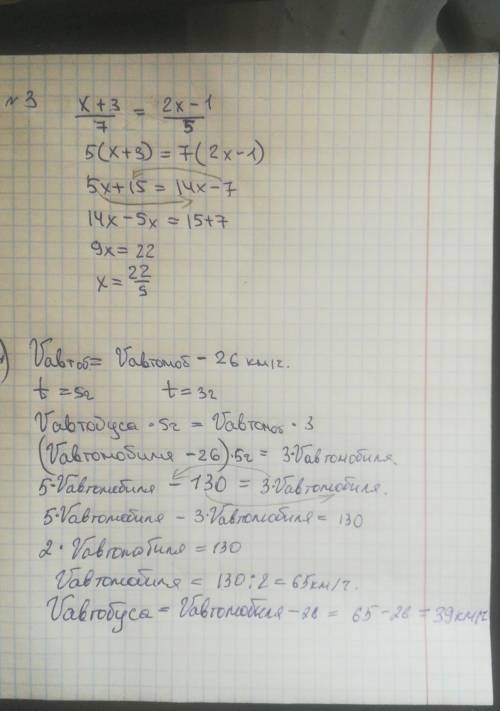 №3
x+3/7 = 2x-1/5
5(x+3) = 7(2x-1)
5x+15 = 14x-7
14x-5x = 15+7
9x = 22
x = 22/9
) Vавтоб = Vавтомоб - 26 км/ч.
t = 5ч t = 3ч
Vавтобуса · 5ч = Vавтомоб · 3
(Vавтомобиля - 26) · 5ч = 3·Vавтомобиля.
5·Vавтомобиля - 130 = 3·Vавтомобиля.
5·Vавтомобиля - 3·Vавтомобиля = 130
2·Vавтомобиля = 130
Vавтомобиля = 130:2 = 65км/ч.
Vавтобуса = Vавтомобиля - 26 = 65-26 = 39км/ч